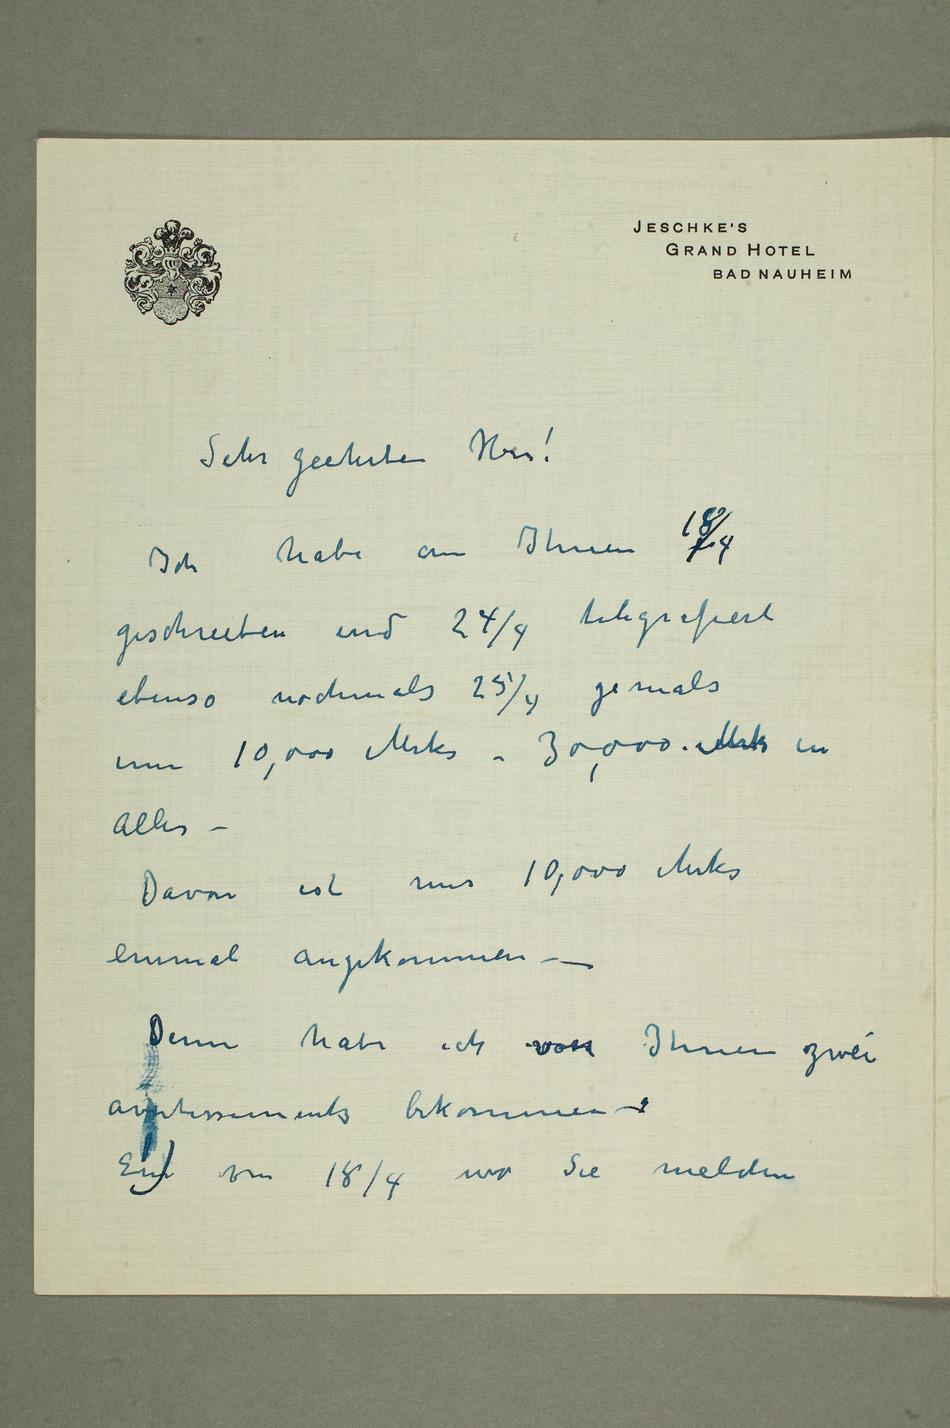 JESCHKE'S
GRAND HOTEL
BAD NAUHEIM
Sehr geehrten Herr!
Ich habe an Ihnen 18/4
geschreiben und 24/4 telegrafiert
ebenso nochmals 25/4 jemals
um 10,000 Mrks - 30,000. Mrks in
Alles -
Davon ist nur 10,000 Mrks
einmal angekommen -
Denn habe ich von Ihnen zwei
avertissements bekommen -
Ein vom 18/4 wo Sie melden